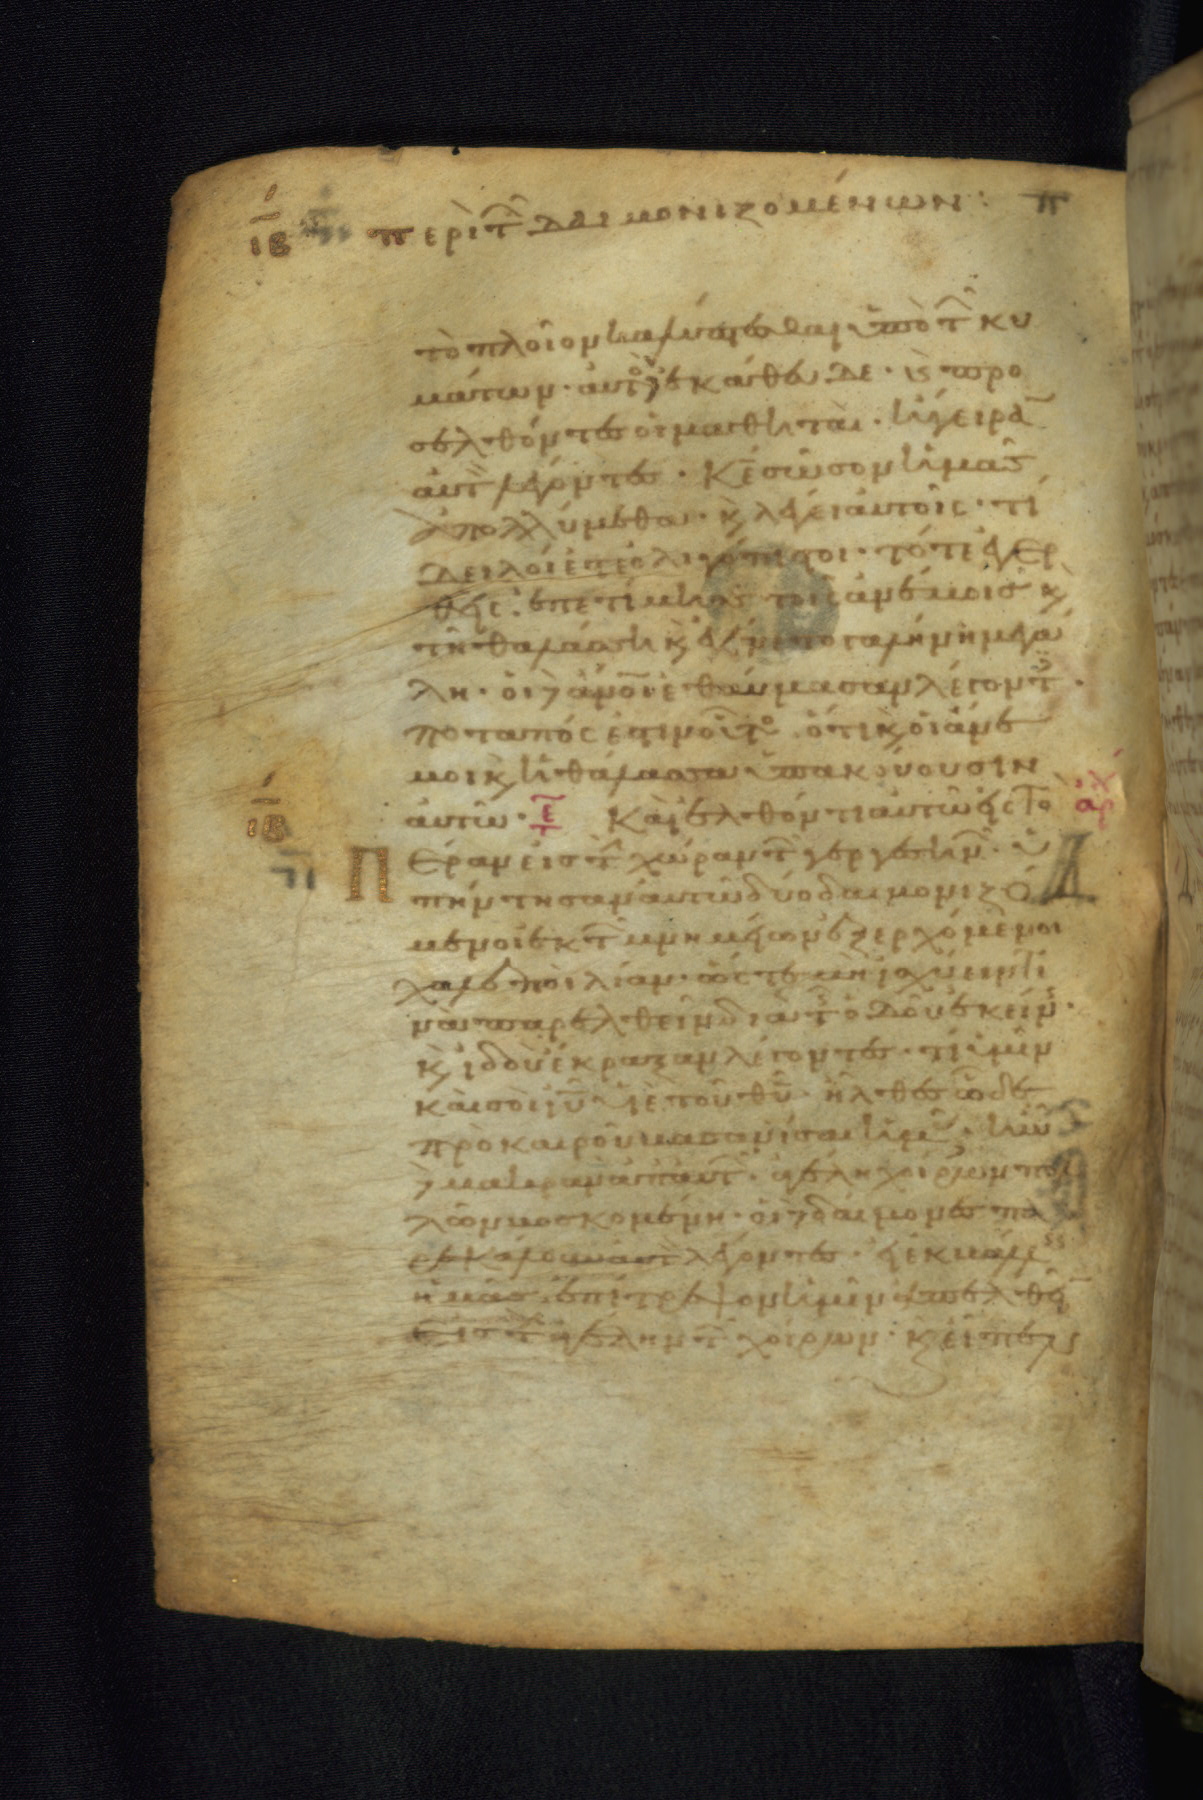 ιβ περὶ τ̑ δαιμονιζομένων:
τὸ πλοῖον καλύπτεσθαι ὑπὸ τ̑ κυ
μάτων· αὐτὸς ἐκάθευδε· κς προ
σελθόντες οἱ μαθηταὶ· ἤγειρα̅
αὐτ λέγοντες· κ̅ε σῶσον ἡμᾶς
ἀπολλύμεθα· κ λέγει αὐτοῖς· τί
δειλοί ἐστε ὀλιγόπιστοι· τότε ἐγερ
θεὶς· ἐπετίμησε τοῖς ἀνέμοις κ
τῆ θαλάσση κ ἐγένετο γαλήνη μεγά
λη· οἱ δ ἀν̅οι ἐθαύμασαν λέγοντ·
ποταπός ἐστιν οὗτο ὅτι κ οἱ ἄνε
μοι κ ἡ θάλασσα ὑπακούουσιν
αὐτῶ· Καὶ ἐλθόντι αὐτῶ εἰς τὸ ἀρχ
Πέραν εἰς τ̑ χώραν τ̑ γεργεσην̑· ὑ
πήντησαν αὐτῶ δύο δαιμονιζό
μενοι ἐκ τ̑ μνημείων ἐξερχόμενοι
χαλεποὶ λίαν· ὥστε μὴ ἰσχύειν τι
νὰ παρελθεῖν διὰ τ̑ ὁδοῦ ἐκείν·
κ ἰδοὺ ἔκραξαν λέγοντες· τί ἡμῖν
καὶ σοὶ ι̅υ υἱὲ τοῦ θ̅υ· ἦλθες ὧδε
πρὸ καιροῦ βασανίσαι ἡμ̑· ἦν
δ μακρὰν ἀπ αὐτ̑· ἀγέλη χοίρων πολ
λῶν βοσκομένη· οἱ δ δαίμονες πα
ρεκάλουν αὐτ λέγοντες· εἰ ἐκβάλλ
ἡμᾶς· ἐπίτρεψον ἡμῖν ἀπελθεῖ
εἰς τ̑ ἀγέλην τ̑ χοίρων· κ εἶπεν